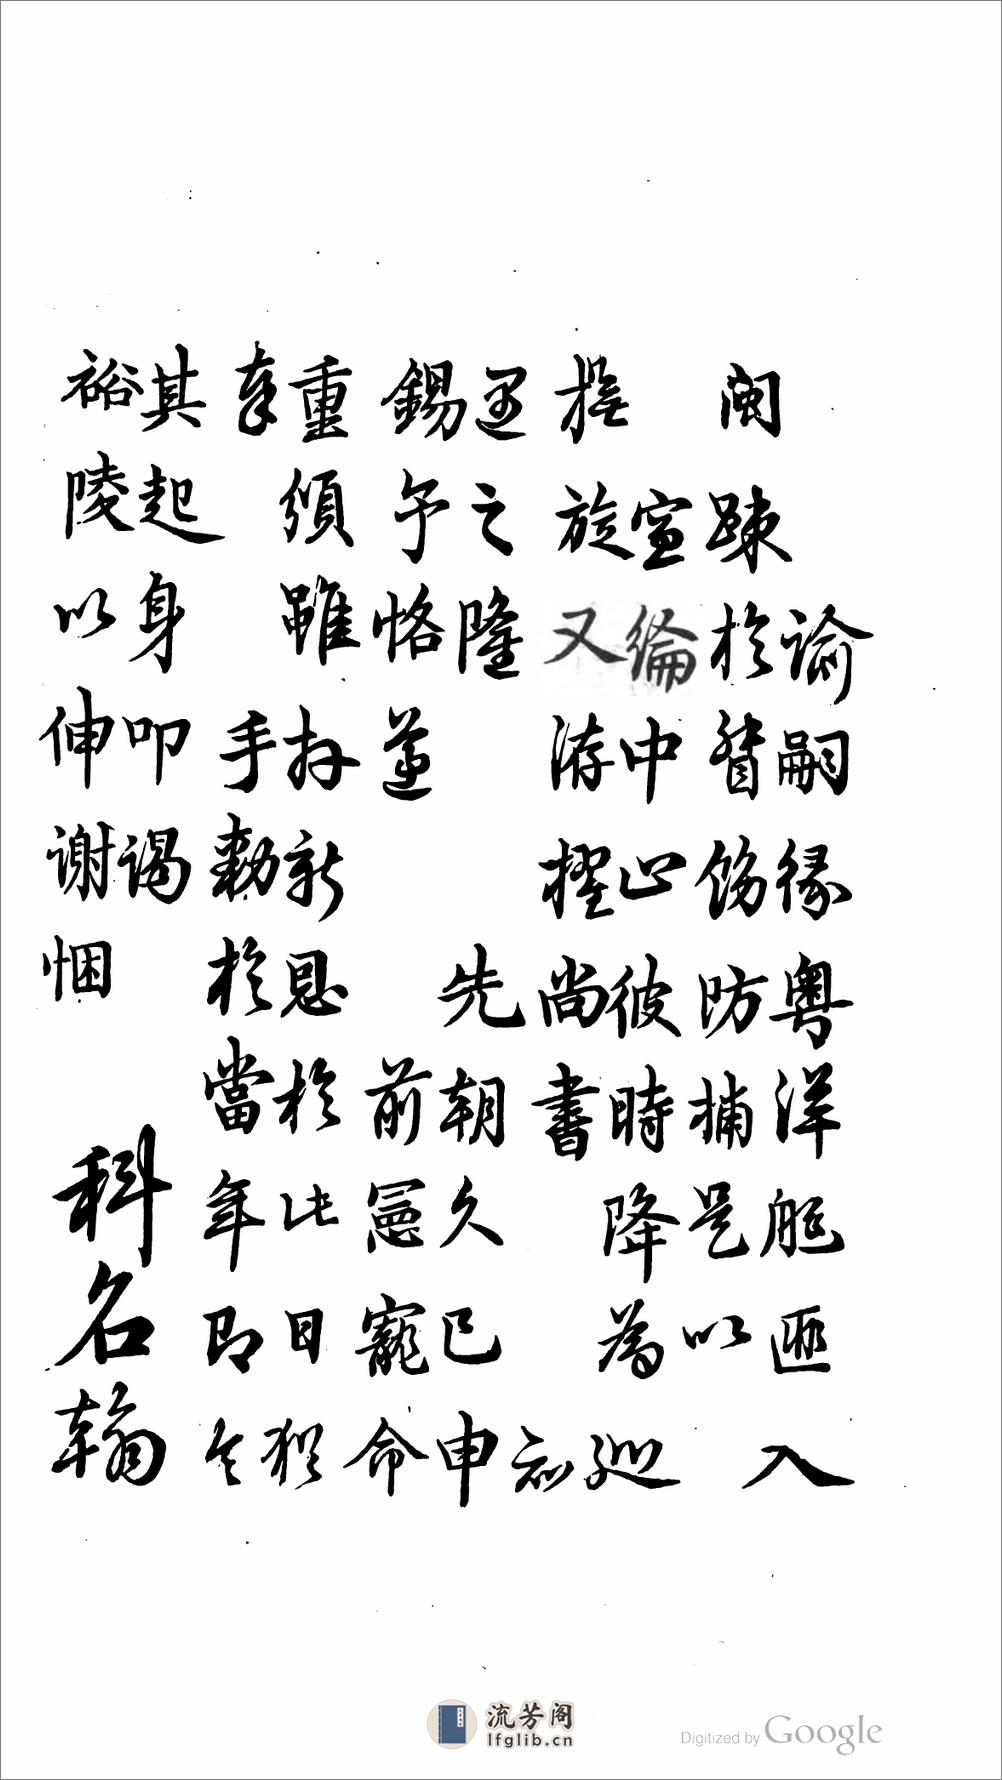 諭嗣緣粵洋艇匪入
閩踈於督飭防捕是以
宣綸中止彼時降為巡
撫旋又游擢尚書知
遇之隆先朝久已申
錫予恪遵前冕寵命
重頒雖拜新恩於此日猶
奉手勅於當年即令
其起身叩謁
裕陵以伸謝悃
科名翰
流芳阁
lfglib.cn
Digitized by Google